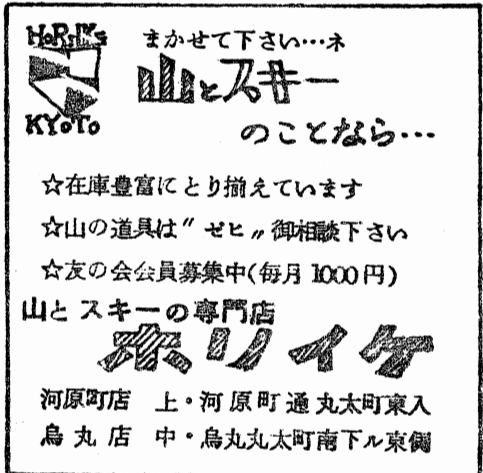 HORIIKE'S
KYOTO
まかせて下さい…ネ
山とスキー
のことなら…
☆在庫豊富にとり揃えています
☆山の道具は〃ゼヒ〃御相談下さい
☆友の会会員募集中(毎月1000円)
山とスキーの専門店
ホリイケ
河原町店 上・河原町通丸太町東入
烏丸店 中・烏丸丸太町南下ル東側